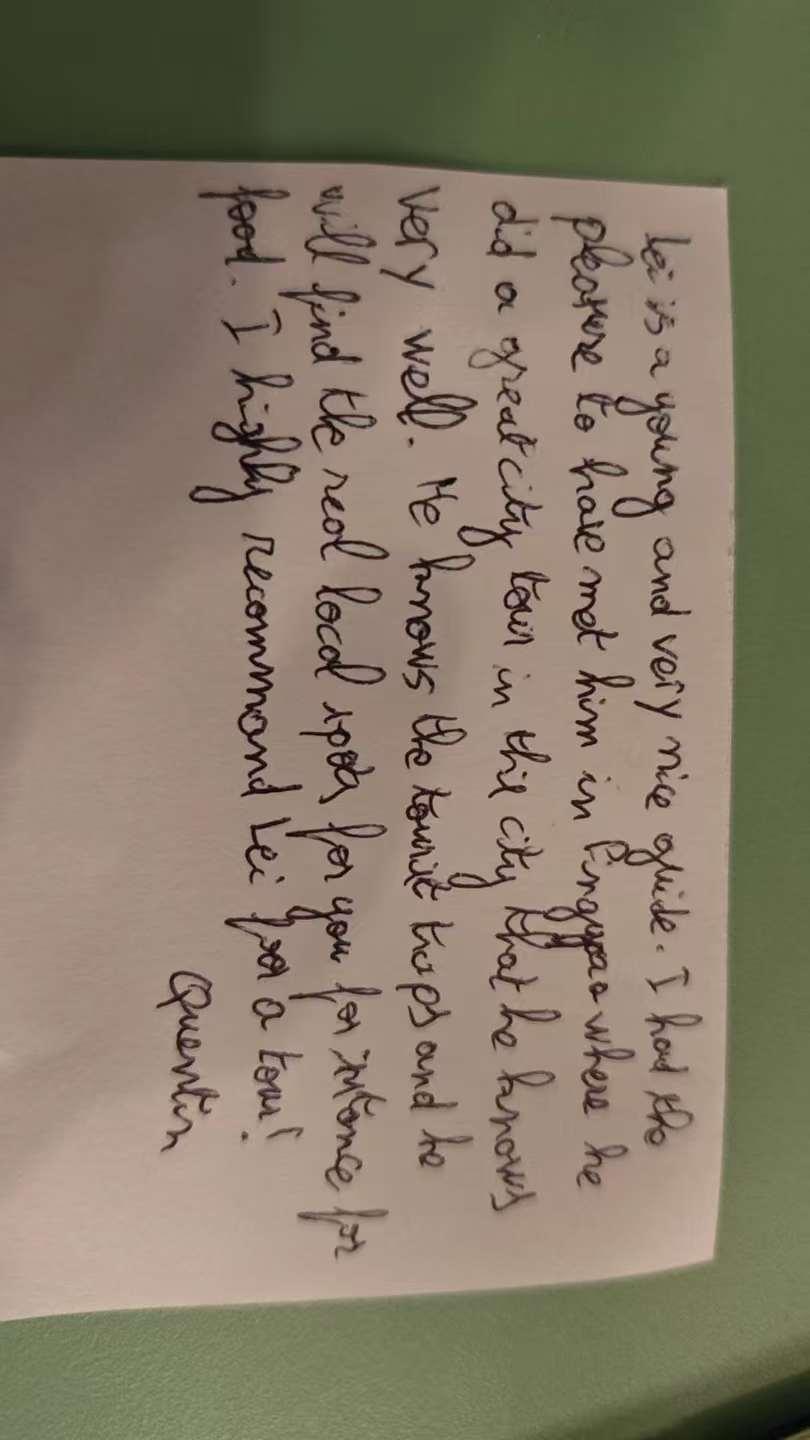 Lei is a young and very nice guide. I had the
pleasure to have met him in where he
did a great city tour in this city that he knows
very well. He knows the tourist traps and he
will find the real local spots for you for instance for
food. I highly recommand Lei for a tour!
Quentin